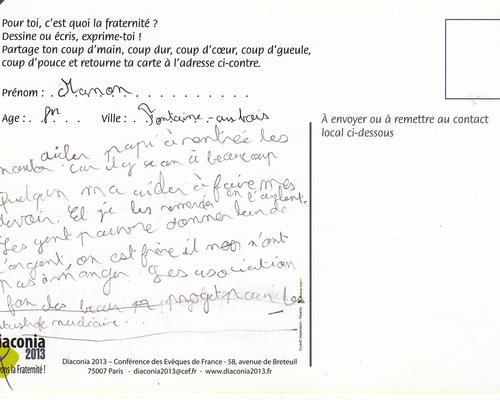 Pour toi, c'est quoi la fraternité ?
Dessine ou écris, exprime-toi !
Partage ton coup d'main, coup dur, coup d'cœur, coup d'gueule,
coup d'pouce et retourne ta carte à l'adresse ci-contre.
Prénom : Manon
Age : Ville : Fontaine-aux-bois
À envoyer ou à remettre au contact
local ci-dessous
aider papi à rentrée les
car il y en à beaucoup
Quelqun ma aider à faire mes
devoir. Et je les en l'aidant.
Les gent pauvre donner leur de
l'argent, on est frère il n'ont
pas à manger. Les asociation
fon des
nucléaire...
Diaconia
2013
ons la Fraternité !
Diaconia 2013 – Conférence des Evêques de France - 58, avenue de Breteuil
75007 Paris - diaconia2013@cef.fr - www.diaconia2013.fr